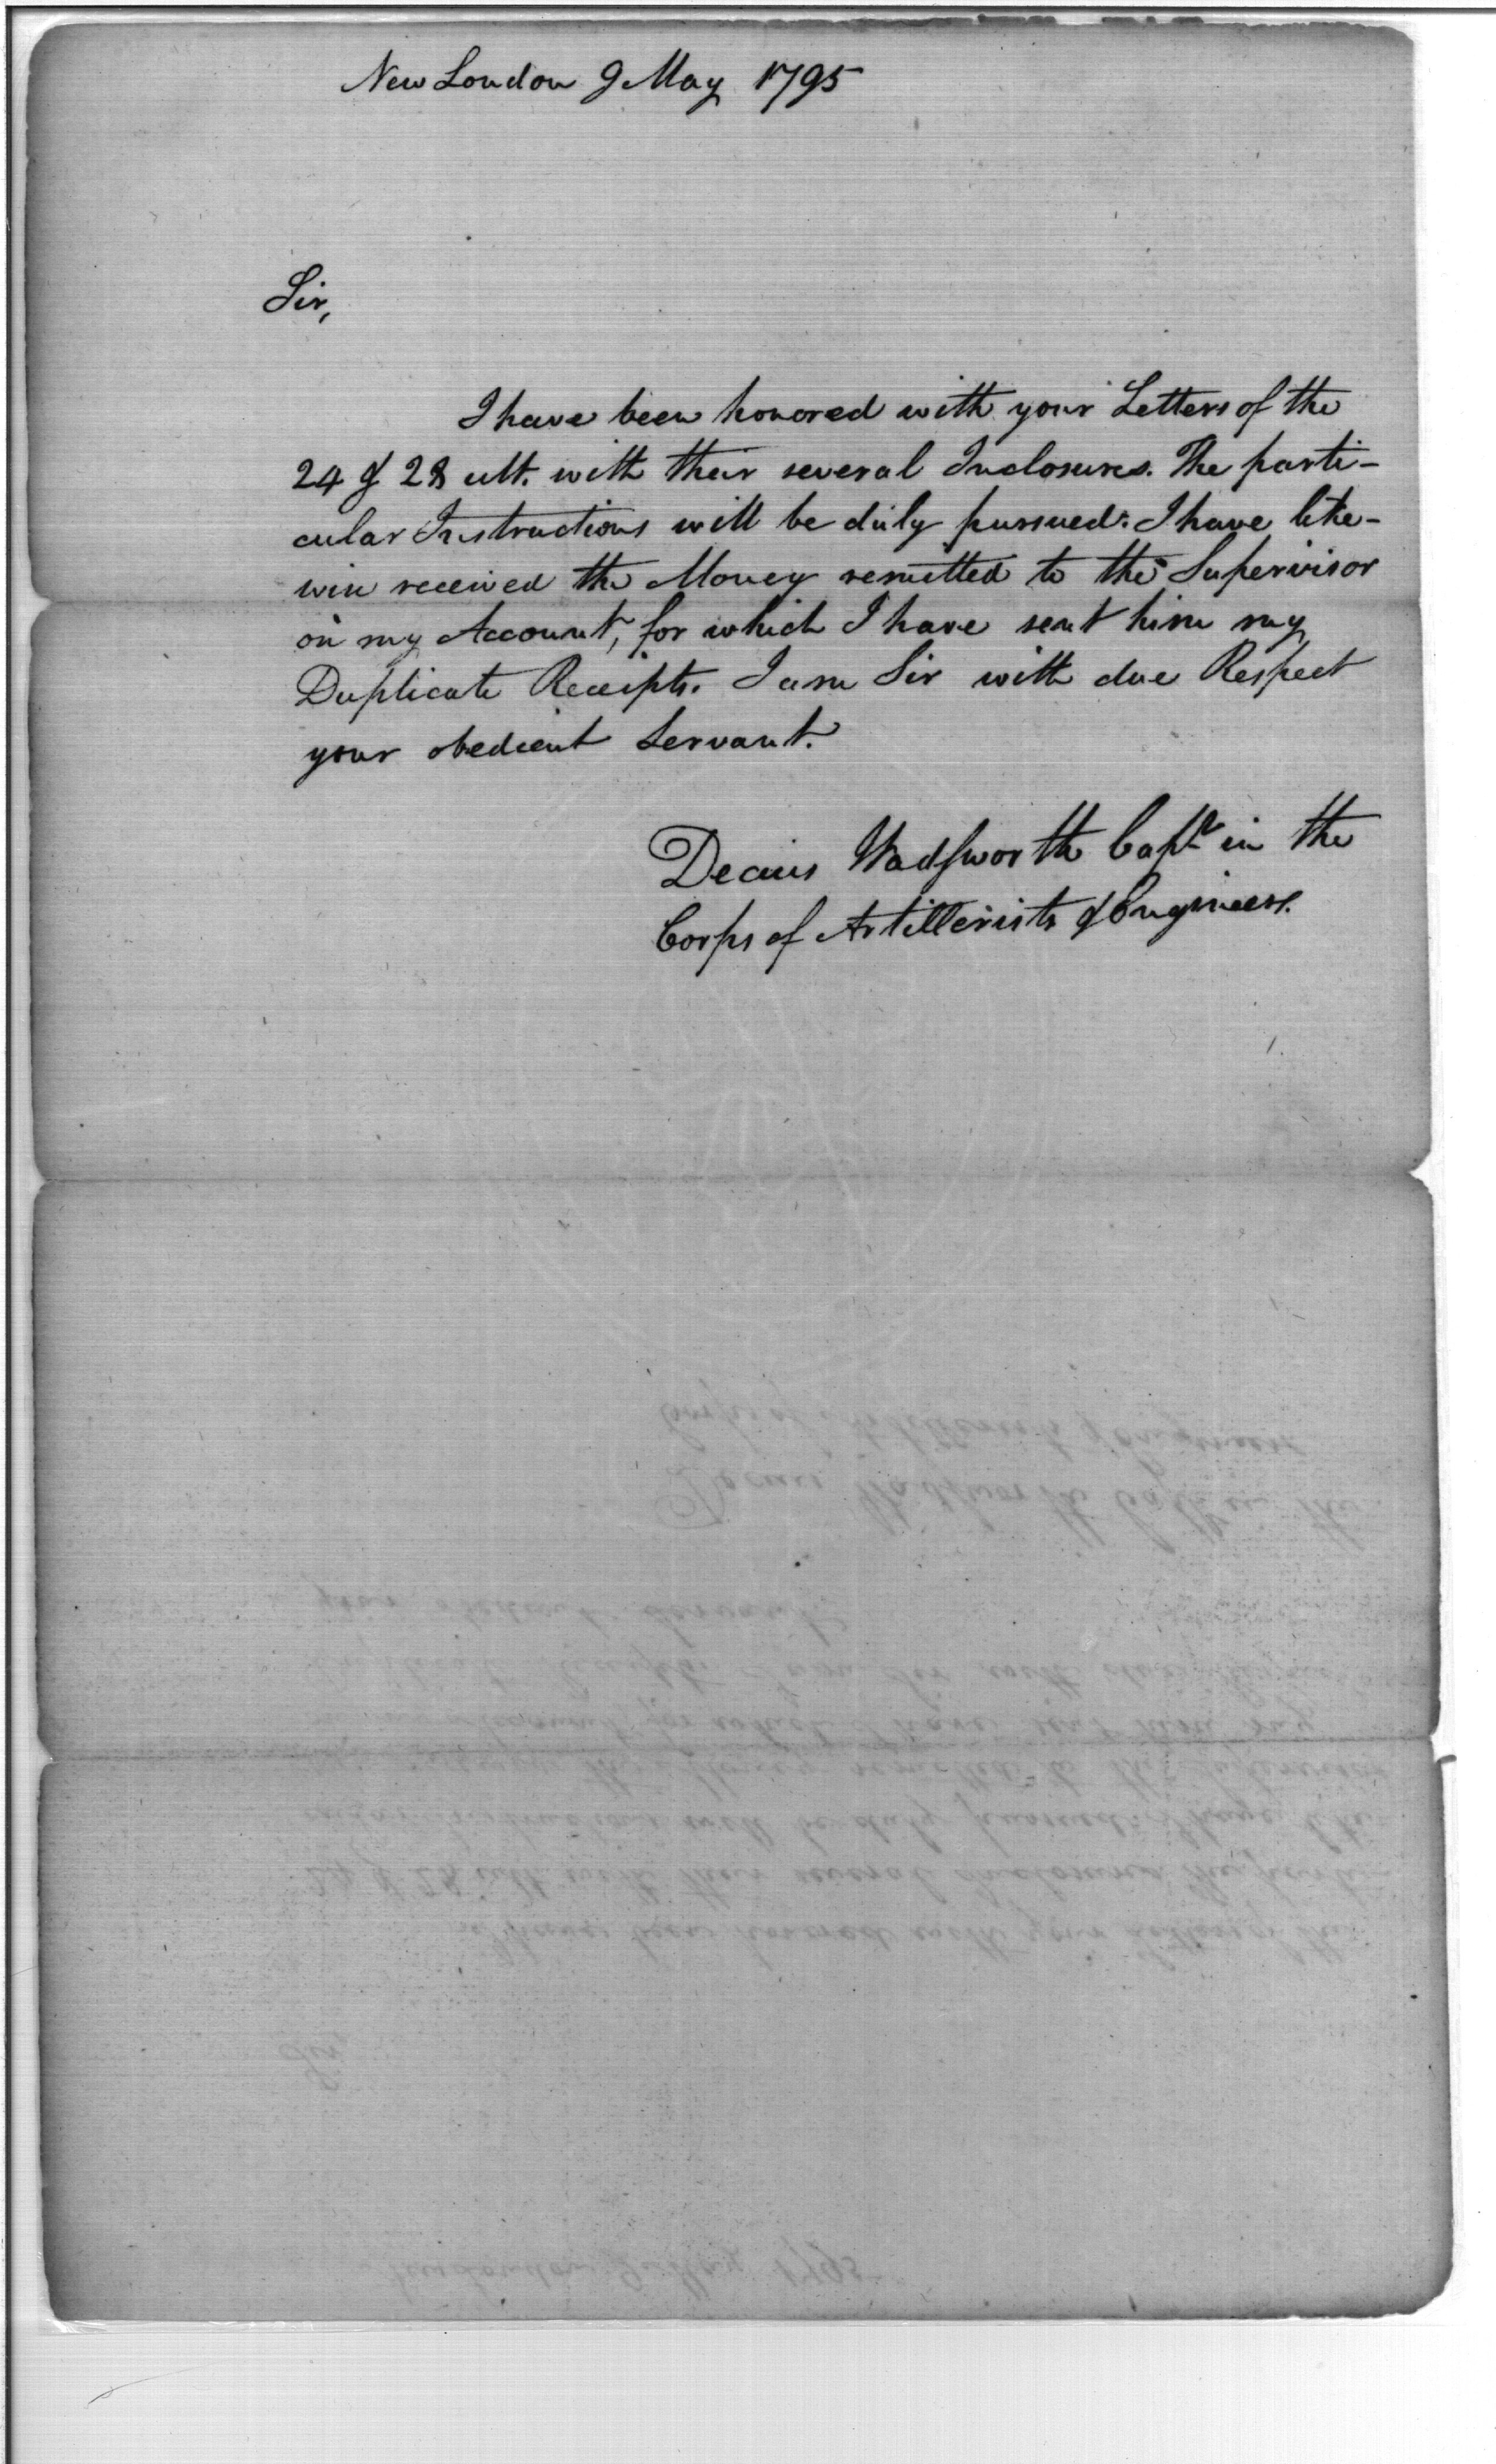 New London 9 May 1795
Sir,
I have been honored with your Letters of the
24 & 28 ult. with their several Inclosures. The parti-
cular Instructions will be duly pursued. I have like-
wise received the Money remitted to the Supervisor
on my Account, for which I have sent him my
Duplicate Receipts. I am Sir with due Respect
your obedient Servant.
Decius Wadsworth Capt. in the
Corps of Artillerists & Engineers.